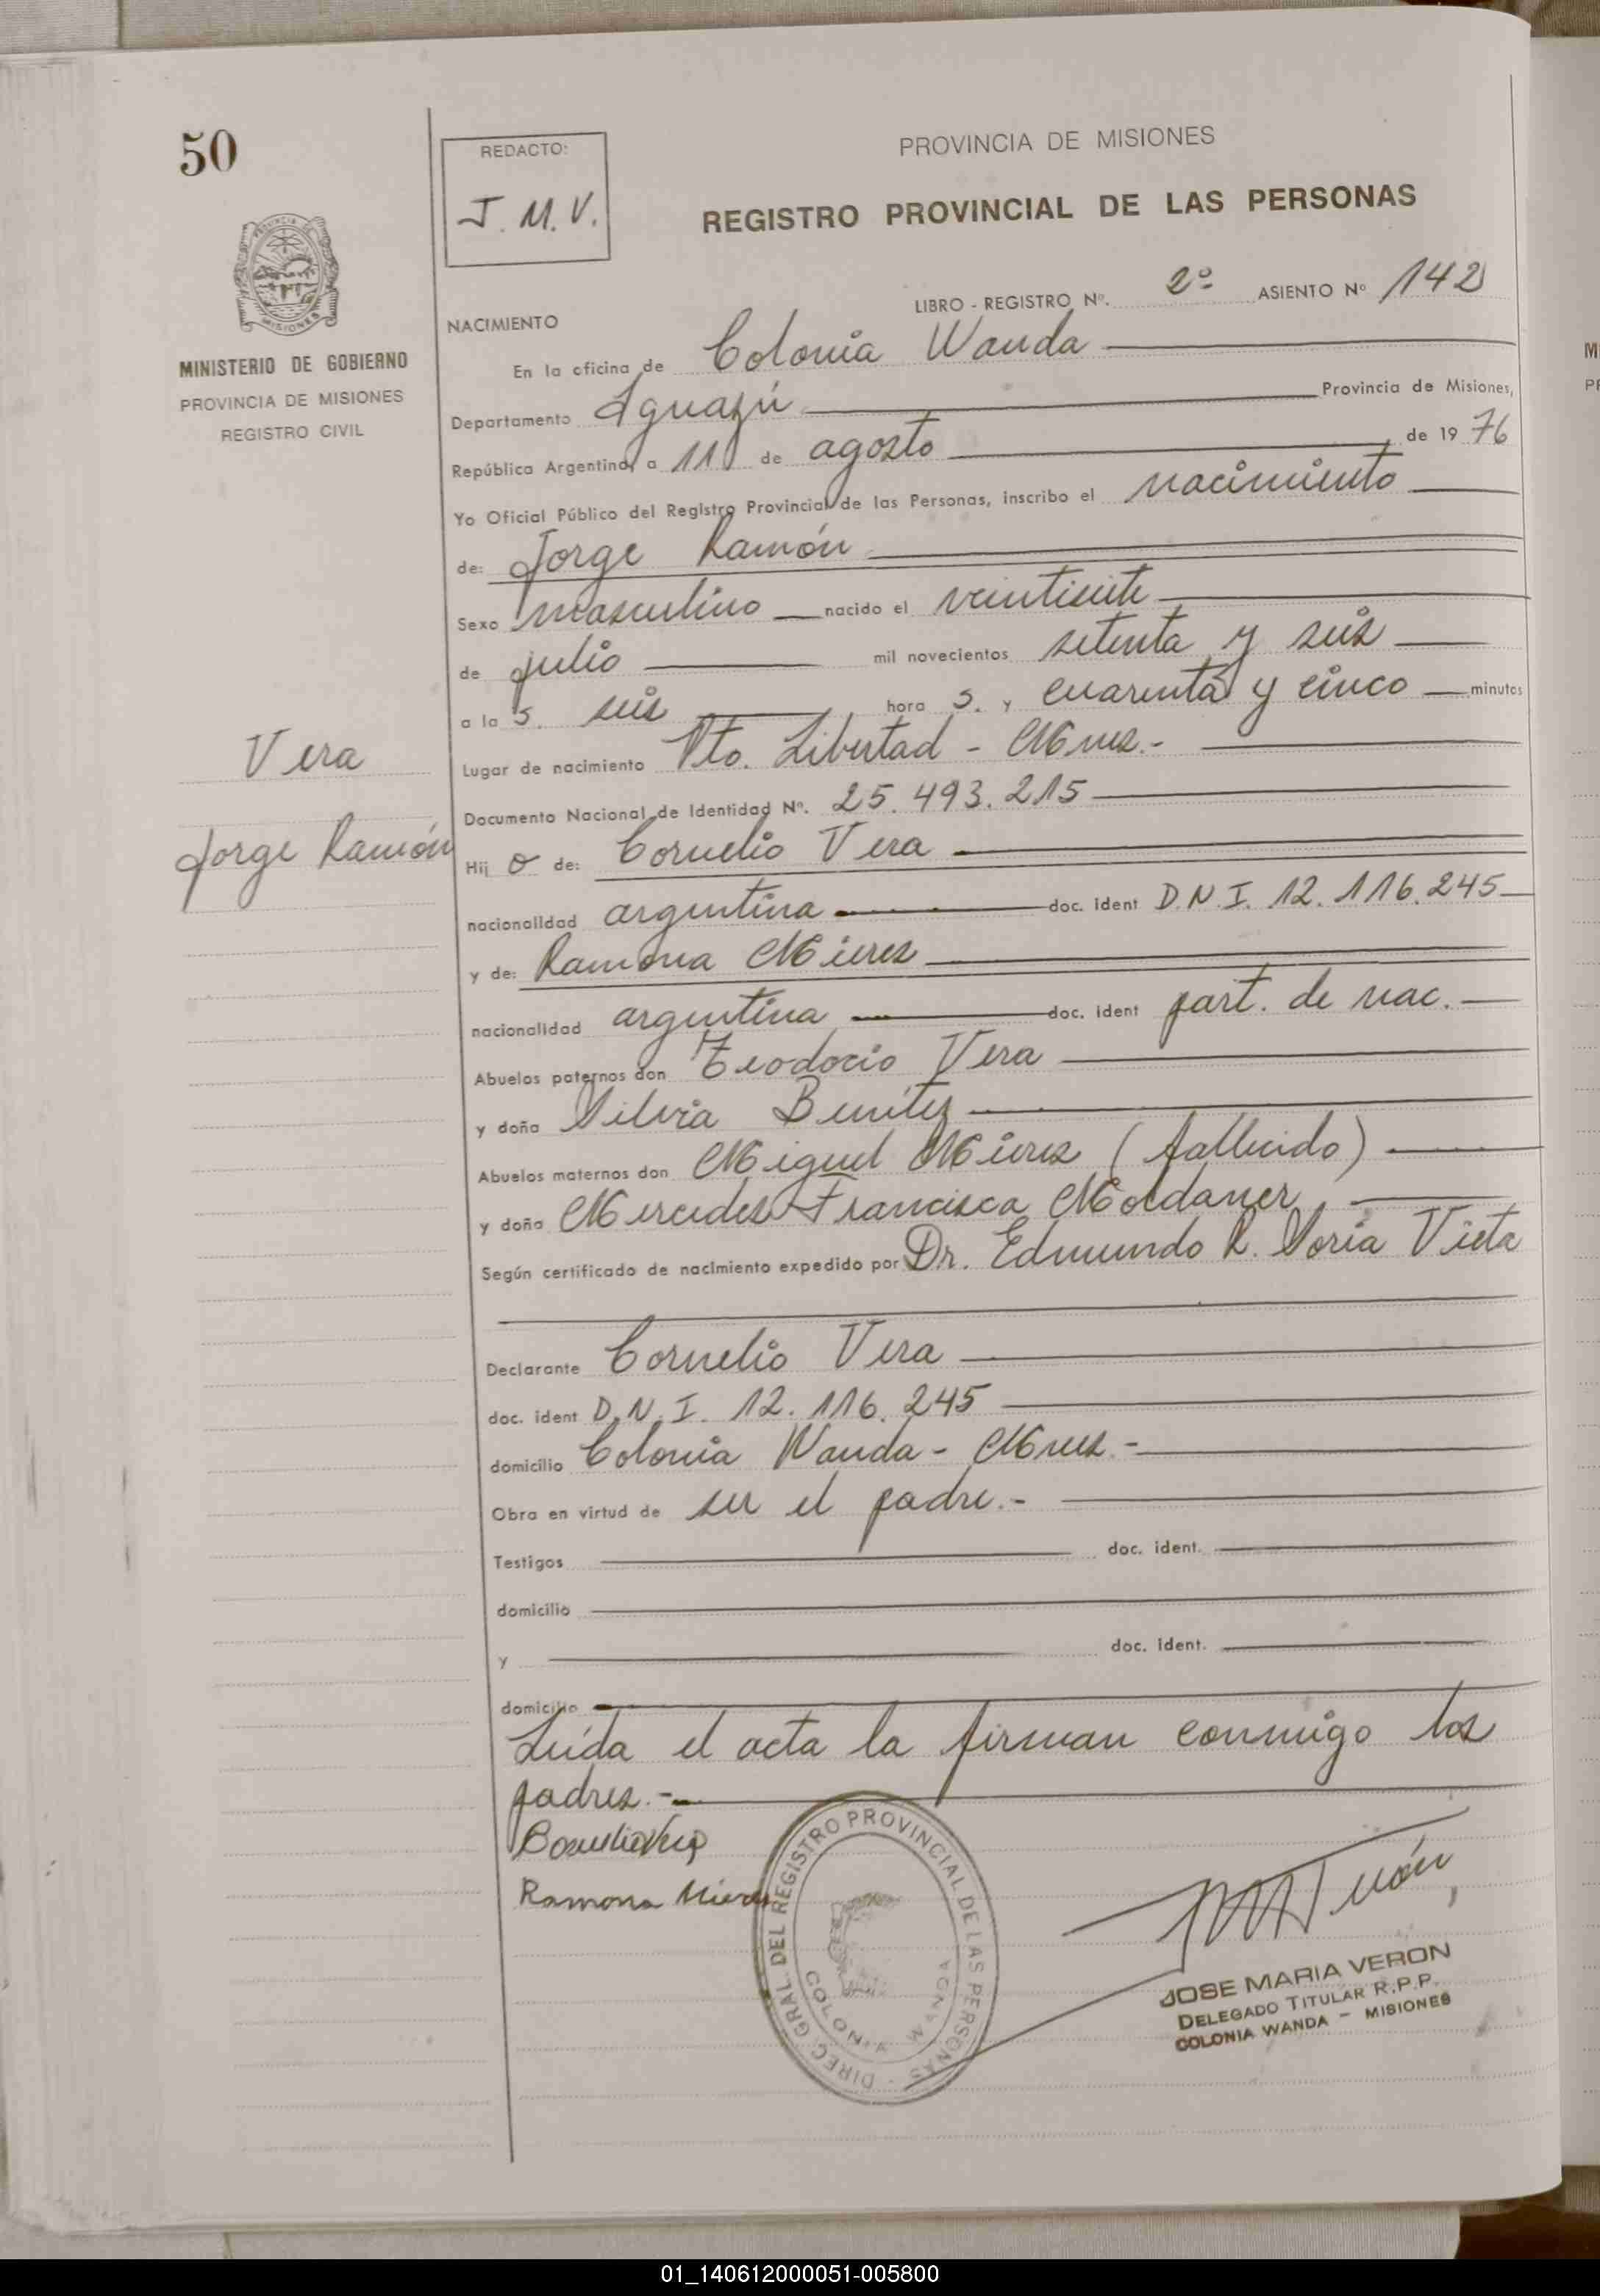 50
REDACTO:
J. M. V.
PROVINCIA DE MISIONES
REGISTRO PROVINCIAL DE LAS PERSONAS
LIBRO - REGISTRO Nº. 2º ASIENTO Nº 142
PROVINCIA DE MISIONES
MINISTERIO DE GOBIERNO
PROVINCIA DE MISIONES
REGISTRO CIVIL
NACIMIENTO
En la oficina de Colonia Wanda
Departamento Iguazú Provincia de Misiones,
República Argentina, a 11 de agosto de 19 76
Yo Oficial Público del Registro Provincial de las Personas, inscribo el nacimiento
de: Jorge Ramón
Sexo masculino nacido el veintisiete
de julio mil novecientos setenta y seis
a la s. seis hora s. y cuarenta y cinco minutos
Vera
Lugar de nacimiento Pto. Libertad - Mnes.-
Documento Nacional de Identidad Nº. 25.493.215
Jorge Ramón
Hij o de: Cornelio Vera
nacionalidad argentina doc. ident D.N.I. 12.116.245
y de: Ramona Mierez
nacionalidad argentina doc. ident part. de nac.
Abuelos paternos don Teodocio Vera
y doña Silvia Benítez
Abuelos maternos don Miguel Mierez (fallecido)
y doña Mercedes Francisca Moldaner
Según certificado de nacimiento expedido por Dr. Edmundo R. Soria Vieta
Declarante Cornelio Vera
doc. ident D.N.I. 12.116.245
domicilio Colonia Wanda - Mnes.-
Obra en virtud de ser el padre.-
Testigos doc. ident.
domicilio
y doc. ident.
domicilio
Leída el acta la firman conmigo los
padres.-
Cornelio Vera
Ramona Mierez
DIREC. GRAL. DEL REGISTRO PROVINCIAL DE LAS PERSONAS
COLONIA WANDA
JOSE MARIA VERON
DELEGADO TITULAR R.P.P.
COLONIA WANDA - MISIONES
01_140612000051-005800